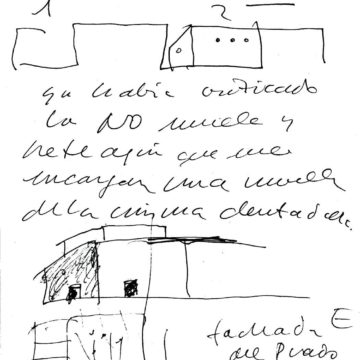 1 2
ya había criticado
la NO muela y
hete aquí que me
encargan una muela
de la misma dentadura.
E
fachada
del Prado